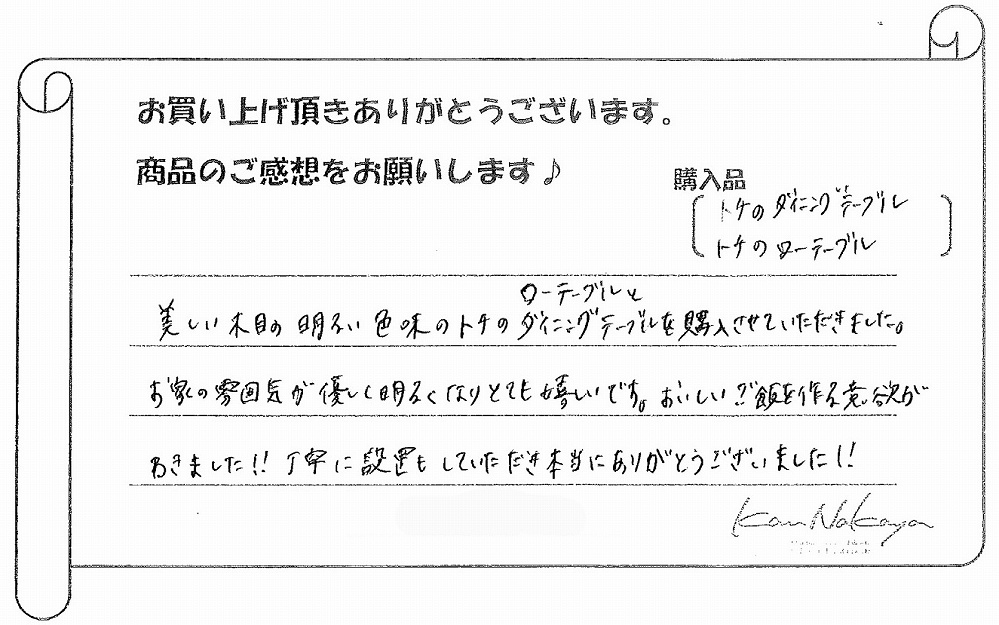 お買い上げ頂きありがとうございます。
商品のご感想をお願いします♪
購入品
トチのダイニングテーブル
トチのローテーブル
ローテーブルと
美しい木目の明るい色味のトチのダイニングテーブルを購入させていただきました。
お家の雰囲気が優しく明るくなりとても嬉しいです。おいしいご飯を作る意欲が
わきました!! 丁寧に設置もしていただき本当にありがとうございました!!
Kan Nakaya